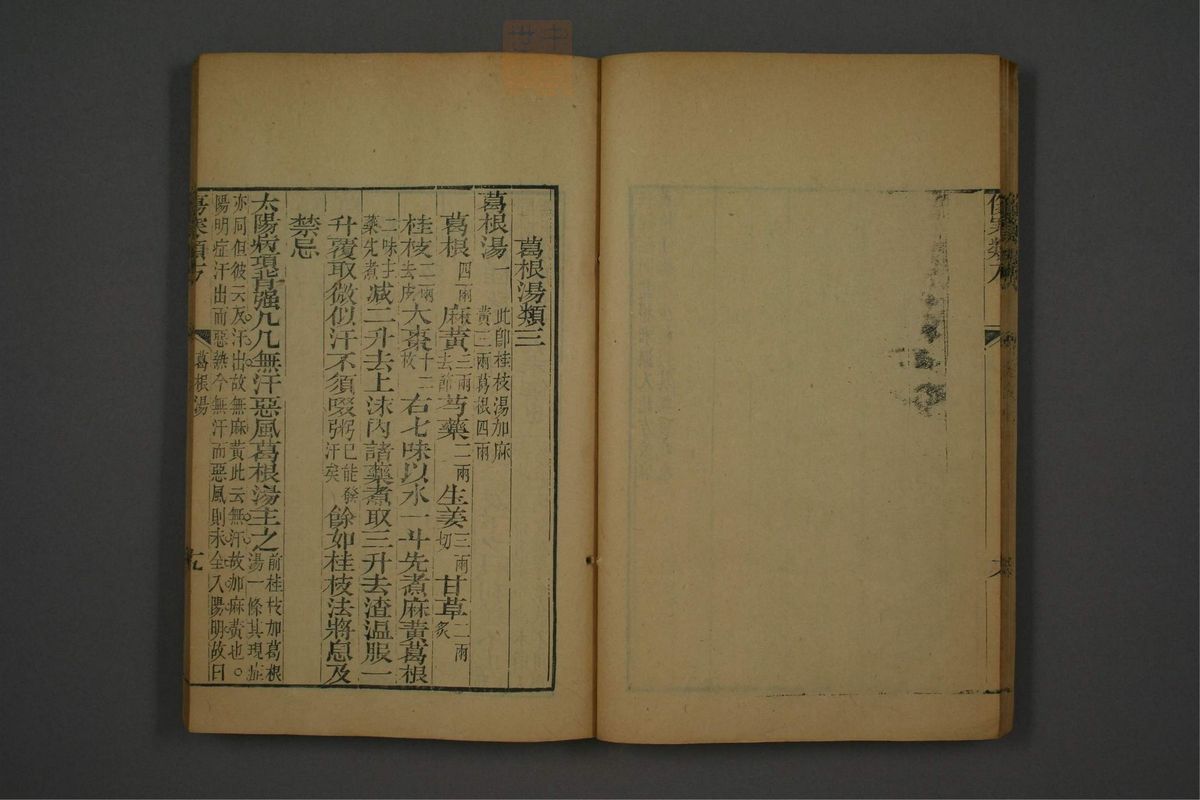 葛根湯類三
葛根湯一 此卽桂枝湯加麻黃三兩葛根四兩
葛根四兩 麻黃三兩去節 芍藥二兩 生姜三兩切 甘草二兩炙
桂枝二兩去皮 大棗十二枚 右七味以水一斗先煮麻黃葛根
二味主藥先煮 减二升去上沫內諸藥煮取三升去渣温服一
升覆取微似汗不須啜粥已能發汗矣 餘如桂枝法將息及
禁忌
太陽病項背強几几無汗惡風葛根湯主之 前桂枝加葛根湯一條其現症
亦同但彼云反汗出故無麻黃此云無汗故加麻黃也
陽明症汗出而惡熱今無汗而惡風則未全入陽明故曰
傷寒類方
葛根湯
十九